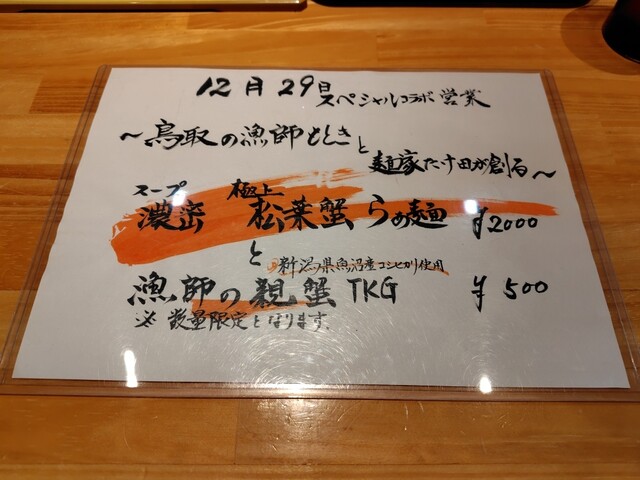 12月29日
スペシャルコラボ営業
～鳥取の漁師ととき
と
麺家たけ田が創る～
スープ 極上
濃密 松葉蟹らぁ麺 ¥2000
と
新潟県魚沼産コシヒカリ使用
漁師の親蟹TKG ¥500
※数量限定となります。